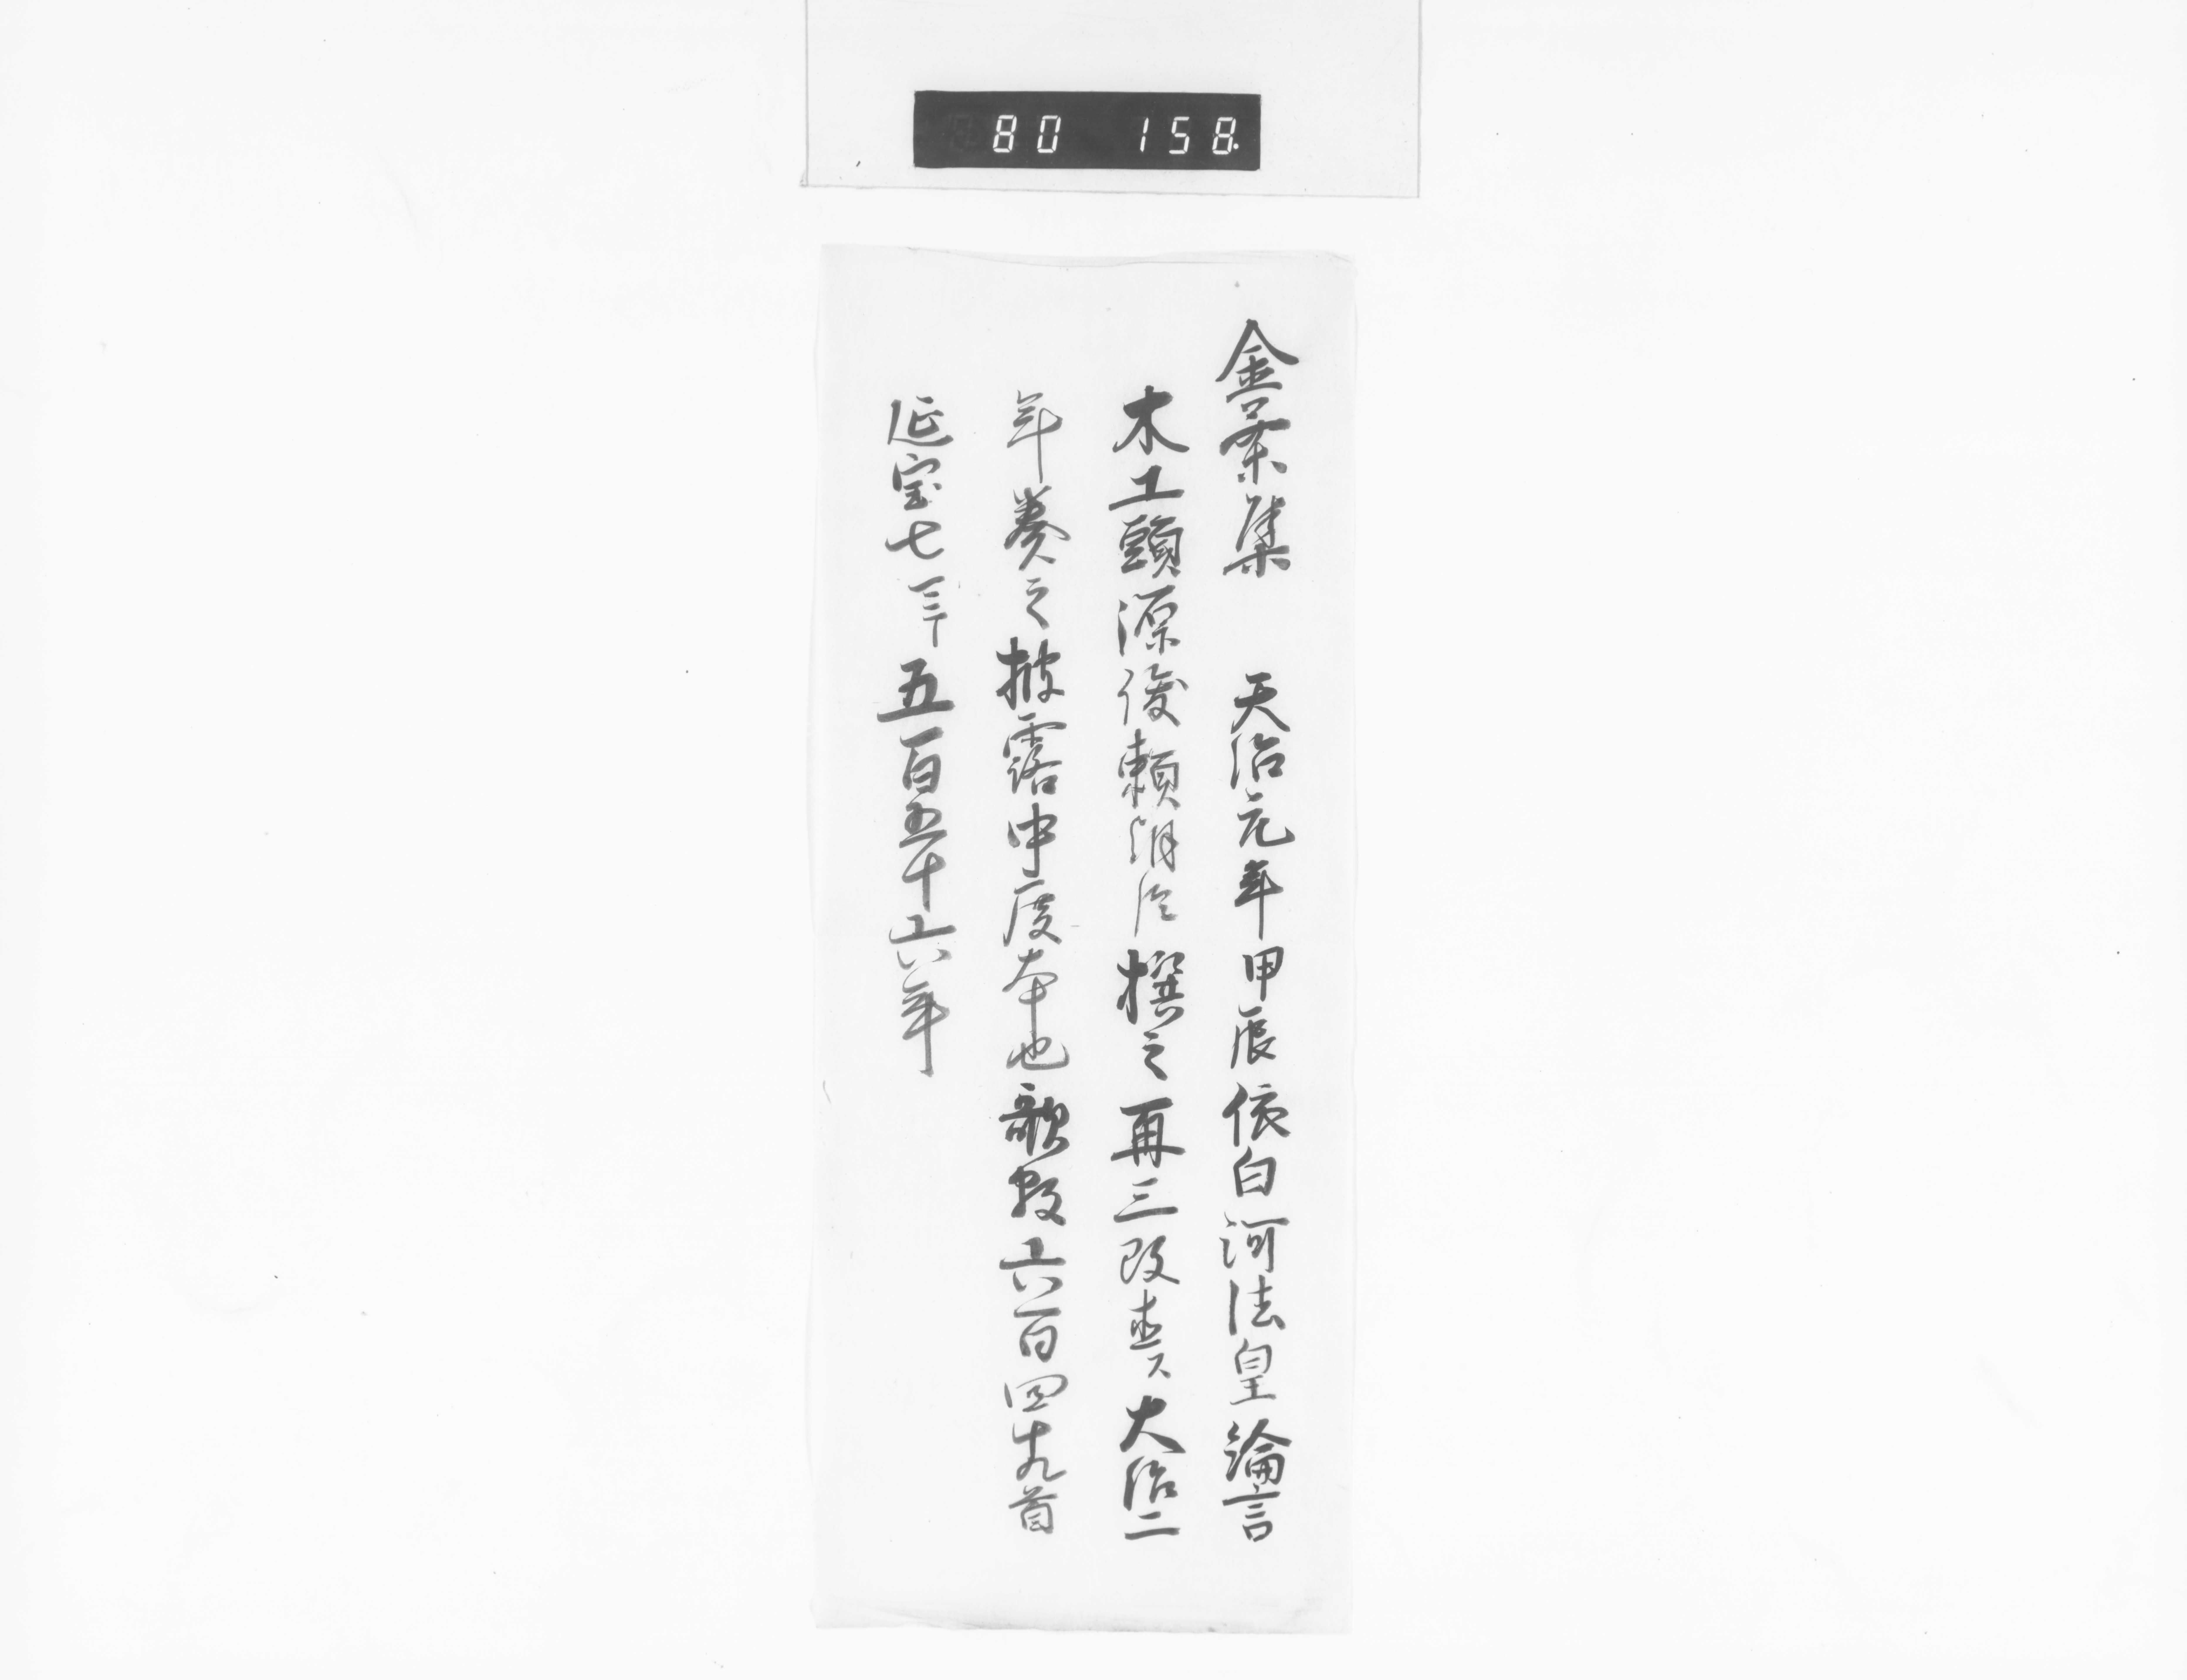 80 158
金葉集 天治元年甲辰依白河法皇綸言
木工頭源俊頼朝臣撰之再三改直ス大治二
年奏之披露中度本也歌数六百四十九首
延宝七マテ五百五十六年